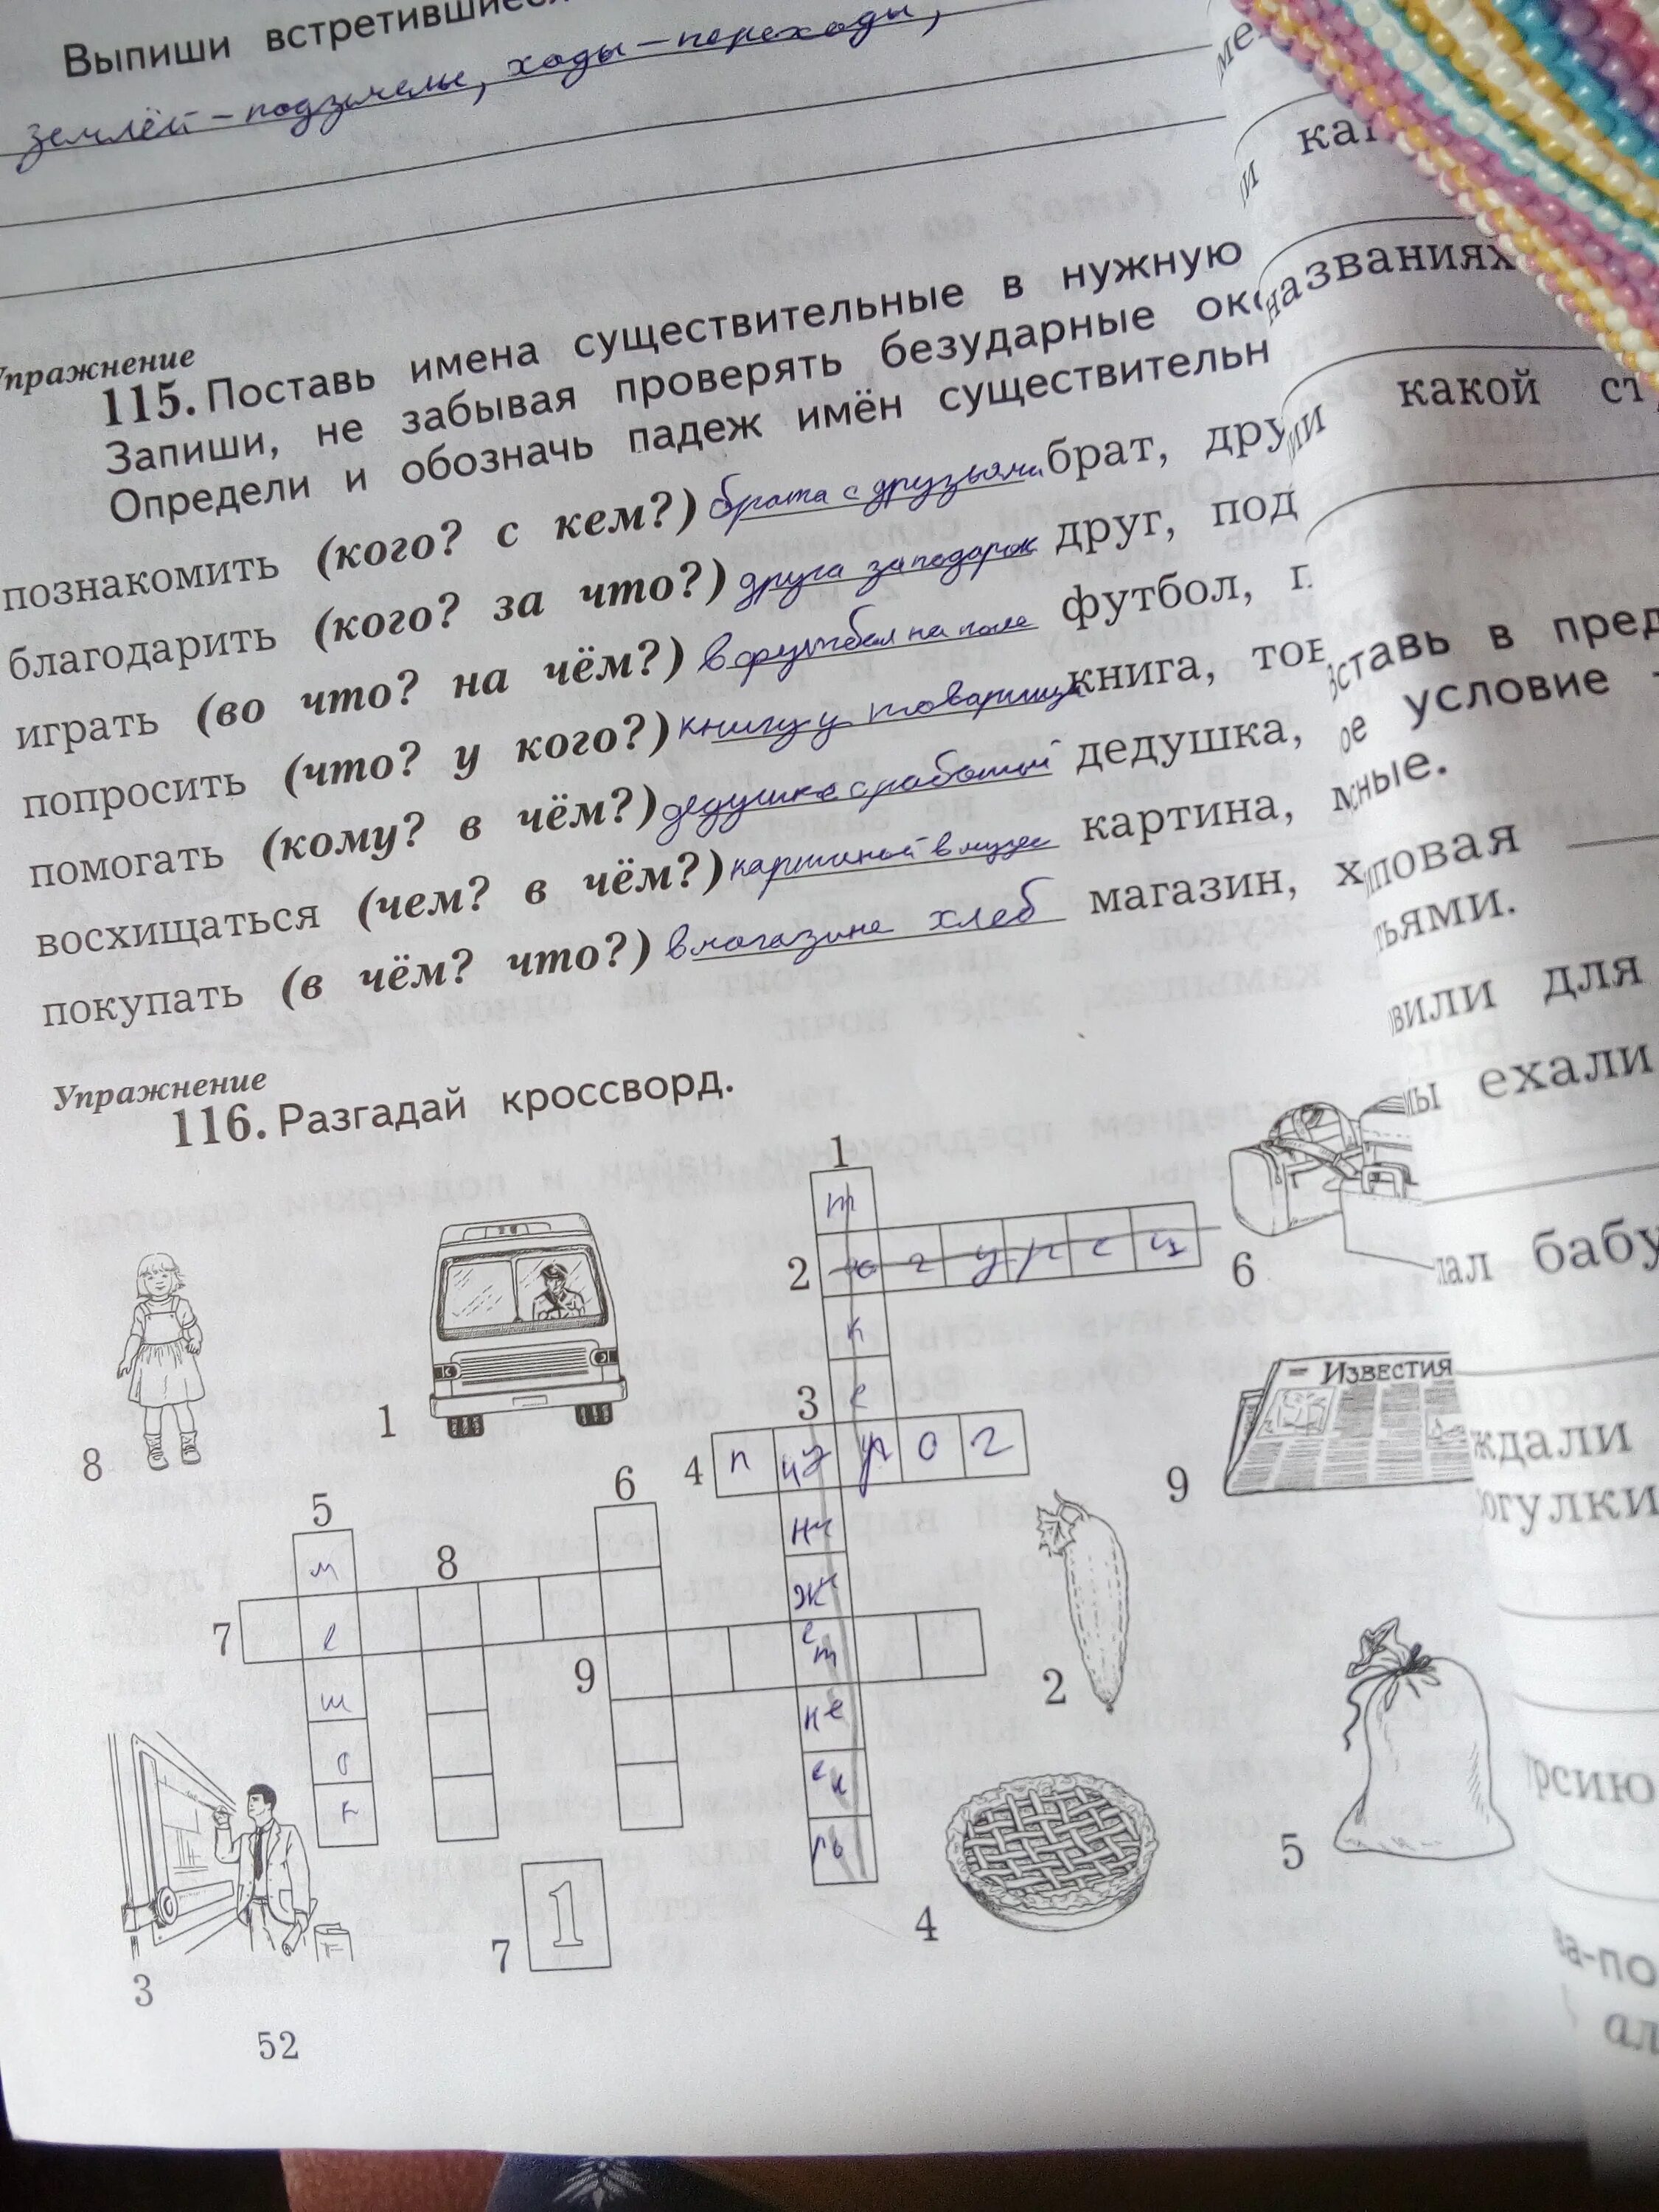 Выпиши встретившиеся
землёй – подземелье, ходы – переходы,
Упражнение
115. Поставь имена существительные в нужную
Запиши, не забывая проверять безударные ок
Определи и обозначь падеж имён существительн
познакомить (кого? с кем?) брата с друзьями брат, дру
благодарить (кого? за что?) друга за подарок друг, под
играть (во что? на чём?) в футбол на поле футбол, п
попросить (что? у кого?) книгу у товарища книга, тов
помогать (кому? в чём?) дедушке с работой дедушка,
восхищаться (чем? в чём?) картиной в музее картина, м
покупать (в чём? что?) в магазине хлеб магазин, х
Упражнение
116. Разгадай кроссворд.
1
т
2 о г у р е ц
к
3 е
4 п р о г
5
м
6
8
7 е
9
ш
о
к
8
1
6
9
ИЗВЕСТИЯ
2
5
4
3
7
1
52
ме
и ка
названиях
ми какой ст
вставь в пред
ое условие
ные.
повая
ьями.
вили для
ы ехали
лал бабу
ждали
огулки
рсию
ва-по
ал